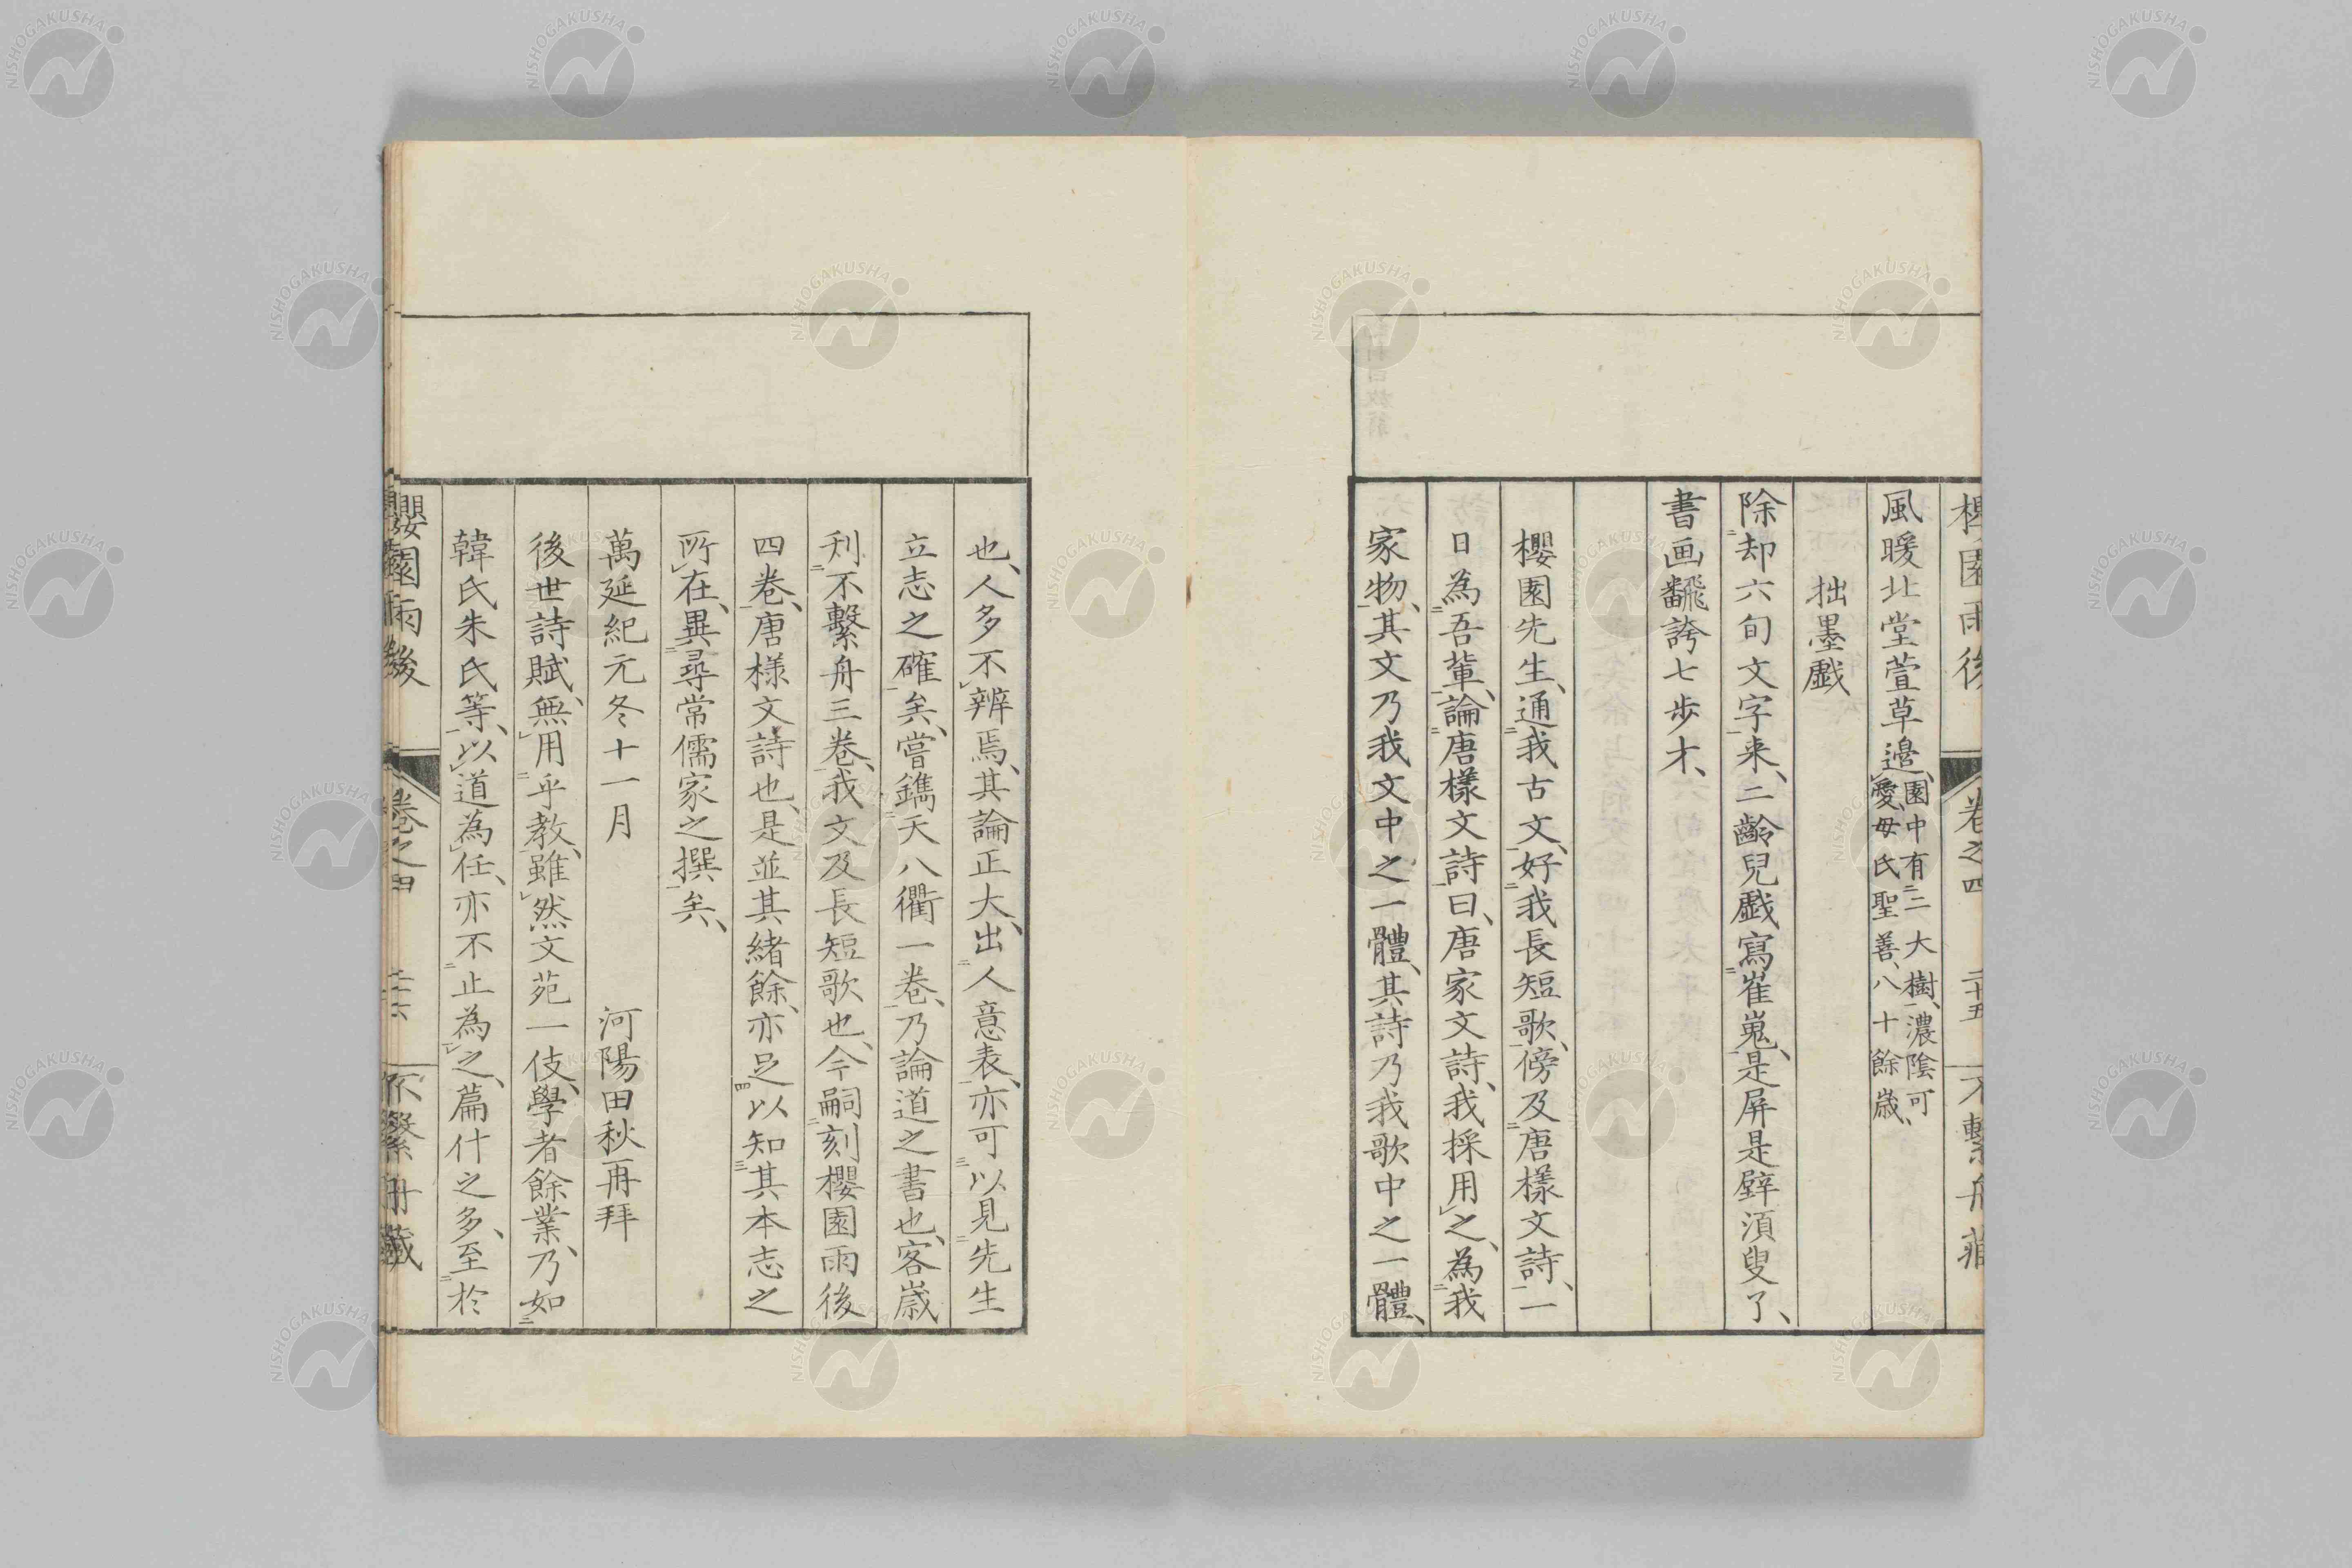 櫻園雨後 卷之四 二十五 不繫舟藏
風暖北堂萱草邊、園中有二三大樹、濃陰可愛、母氏聖善、八十餘歳、
拙墨戯
除却六旬文字来、二齡兒戯寫崔嵬、是屏是壁湏叟了、
書画飜誇七歩才、
櫻園先生、通我古文、好我長短歌、傍及唐樣文詩、一
日為吾輩、論唐樣文詩曰、唐家文詩、我採用之、為我
家物、其文乃我文中之一體、其詩乃我歌中之一體、
也、人多不辨焉、其論正大、出人意表、亦可以見先生
立志之確矣、嘗鐫天八衢一卷、乃論道之書也、客歳
刋不繫舟三卷、我文及長短歌也、今嗣刻櫻園雨後
四卷、唐樣文詩也、是並其緒餘、亦足以知其本志之
所在、異尋常儒家之撰矣、
萬延紀元冬十一月 河陽田秋再拜
後世詩賦、無用乎教、雖然文苑一伎、學者餘業、乃如
韓氏朱氏等、以道為任、亦不止為之、篇什之多、至於
櫻園雨後 卷之四 不繫舟藏
NISHOGAKUSHA